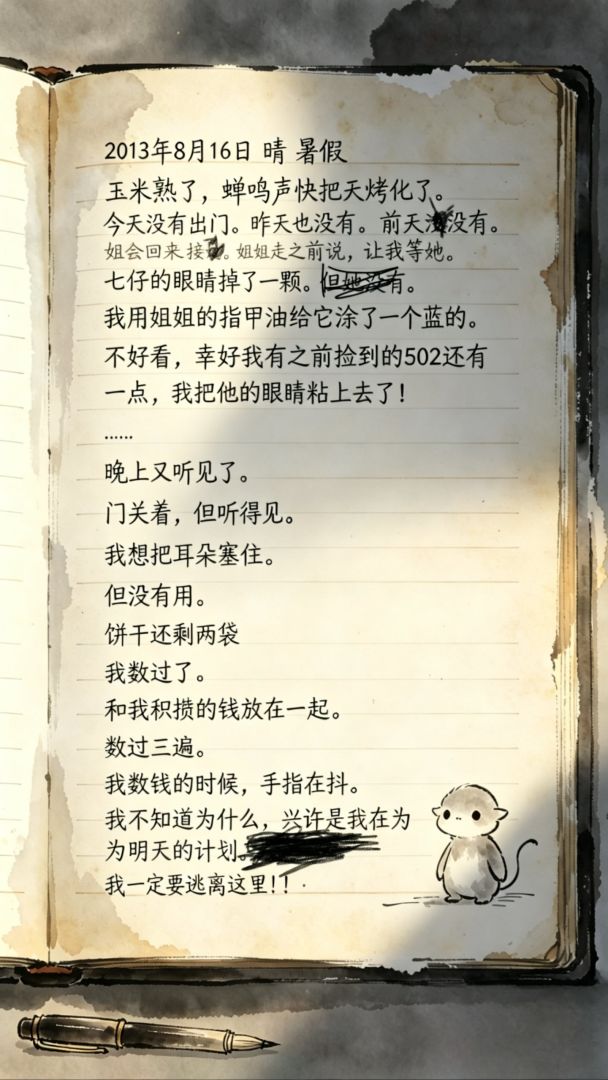 2013年8月16日 晴 暑假
玉米熟了，蝉鸣声快把天烤化了。
今天没有出门。昨天也没有。前天没有。
姐会回来接。姐姐走之前说，让我等她。
七仔的眼睛掉了一颗。但她没有。
我用姐姐的指甲油给它涂了一个蓝的。
不好看，幸好我有之前捡到的502还有
一点，我把他的眼睛粘上去了！
……
晚上又听见了。
门关着，但听得见。
我想把耳朵塞住。
但没有用。
饼干还剩两袋
我数过了。
和我积攒的钱放在一起。
数过三遍。
我数钱的时候，手指在抖。
我不知道为什么，兴许是我在为
为明天的计划
我一定要逃离这里！！